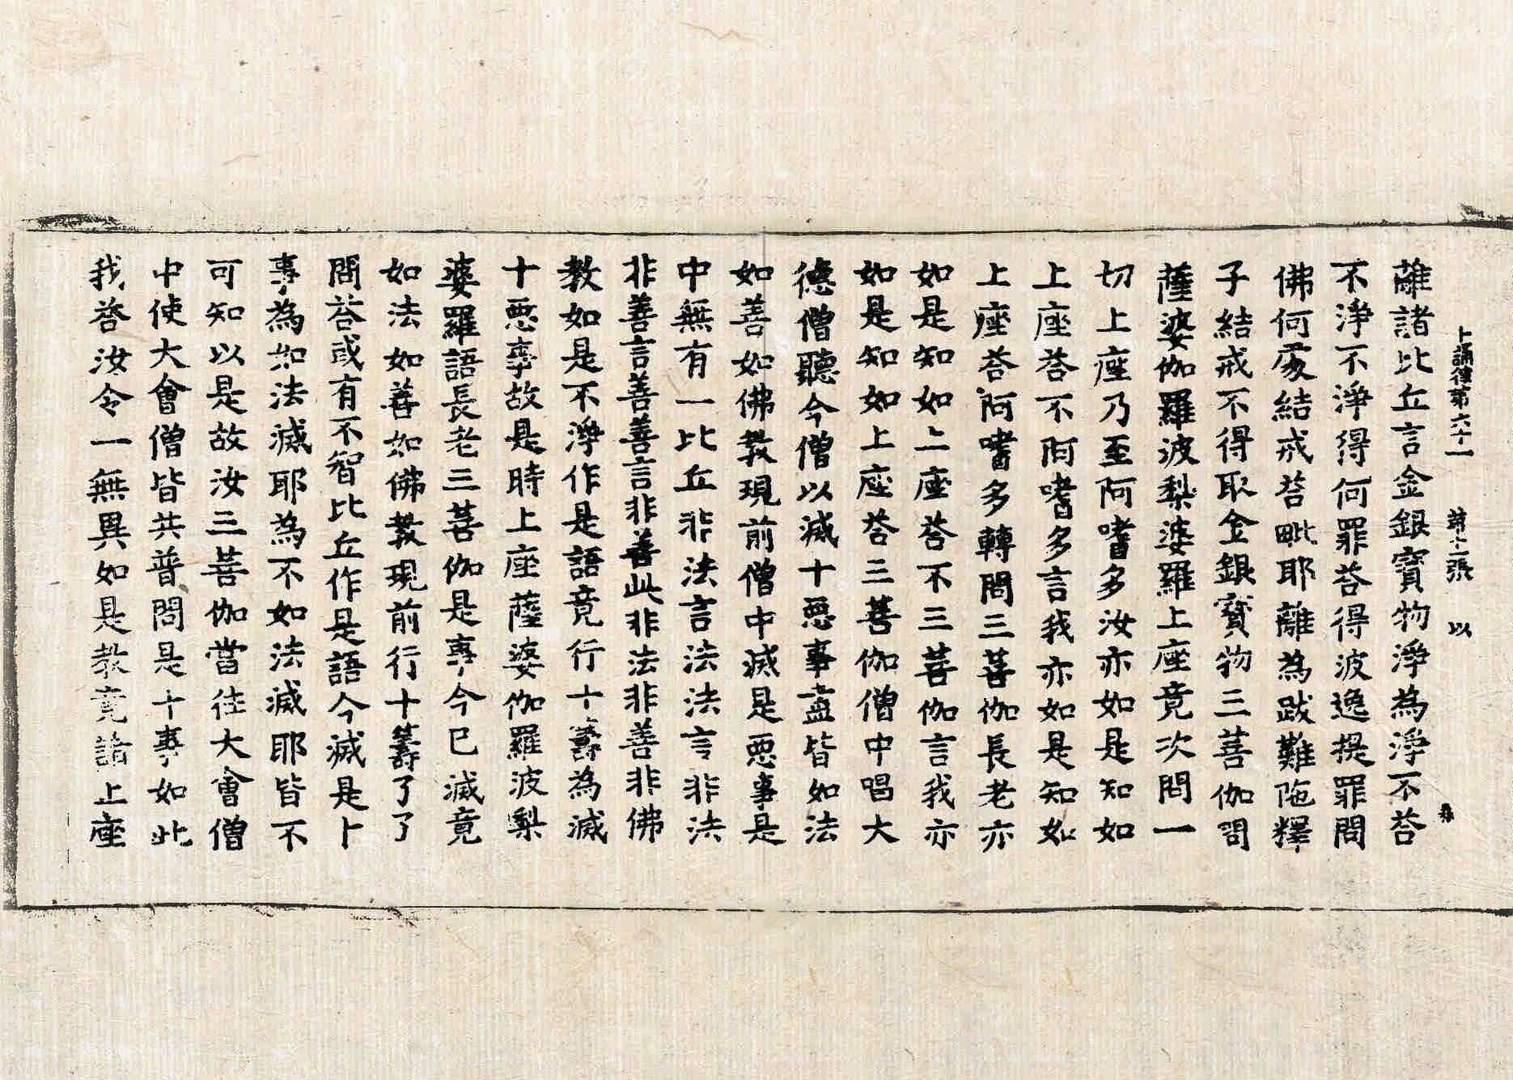 十誦律第六十一　第十二張　以
離諸比丘言金銀寶物淨為淨不荅
不淨不淨得何罪荅得波逸提罪問
佛何處結戒荅毗耶離為跋難陁釋
子結戒不得取金銀寶物三菩伽問
薩婆伽羅波梨婆羅上座竟次問一
切上座乃至阿嗜多汝亦如是知如
上座荅不阿嗜多言我亦如是知如
上座荅阿嗜多轉問三菩伽長老亦
如是知如上座荅不三菩伽言我亦
如是知如上座荅三菩伽僧中唱大
德僧聽今僧以滅十惡事盡皆如法
如善如佛教現前僧中滅是惡事是
中無有一比丘非法言法法言非法
非善言善善言非善此非法非善非佛
教如是不淨作是語竟行十籌為滅
十惡事故是時上座薩婆伽羅波梨
婆羅語長老三菩伽是事今已滅竟
如法如善如佛教現前行十籌了了
問荅或有不智比丘作是語今滅是十
事為如法滅耶為不如法滅耶皆不
可知以是故汝三菩伽當往大會僧
中使大會僧皆共普問是十事如此
我荅汝令一無異如是教竟諸上座